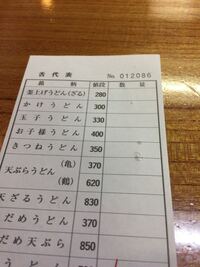 舌代表 No. 012086
銘柄 値段 数量
釜上げうどん(ざる) 280
かけうどん 300
玉子うどん 330
お子様うどん 400
きつねうどん 350
天ぷらうどん (亀) 370
(鶴) 620
天ざるうどん 830
だめうどん 370
だめ天ぷら 850